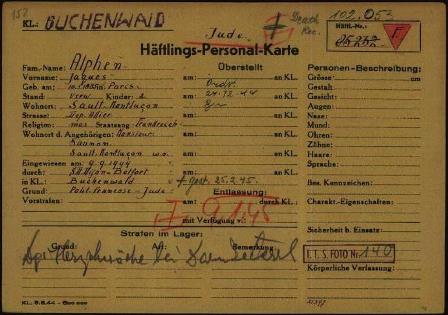 152
KL.: BUCHENWALD
Jude
Death
Rec.
102.053
Häftl.-Nr.:
F
Häftlings-Personal-Karte
Fam.-Name: Alphen
Überstellt
Personen-Beschreibung:
Vorname: Jaques
am: an KL.
Grösse:
Geb. am: in: Paris
am: an KL.
Gestalt:
Stand: verw Kinder: 2
am: 24.12.44 an KL.
Gesicht:
Wohnort: Sault-Montluçon
am: an KL.
Augen:
Strasse: Dep. Allier
am: an KL.
Nase:
Religion: mos Staatsang.: Frankreich
am: an KL.
Mund:
Wohnort d. Angehörigen:
am: an KL.
Ohren:
Zähne:
Sault-Montluçon w.o.
am: an KL.
Haare:
Eingewiesen am: 9.9.1944
Sprache:
durch: Dijon-Belfort
in KL.: Buchenwald
gest. 25.2.45.
Bes. Kennzeichen:
Grund: Polit. Franzose - Jude
Entlassung:
Vorstrafen:
am: durch KL.:
Charakt.-Eigenschaften:
mit Verfügung v.:
Strafen im Lager:
Sicherheit b. Einsatz:
Grund: Art: Bemerkung:
I.T.S. FOTO Nr. 140
Herzschwäche bei
Körperliche Verfassung:
KL. 5.8.44 - 500 000